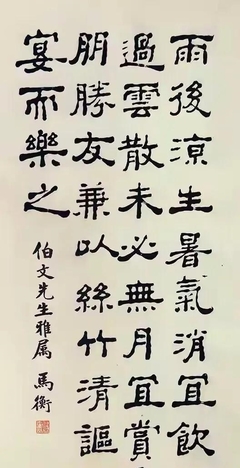 雨後涼生暑氣消宜飲
過雲散未必無月宜賞
朋勝友兼以絲竹清謳
宴而樂之
伯文先生雅属 馬衡